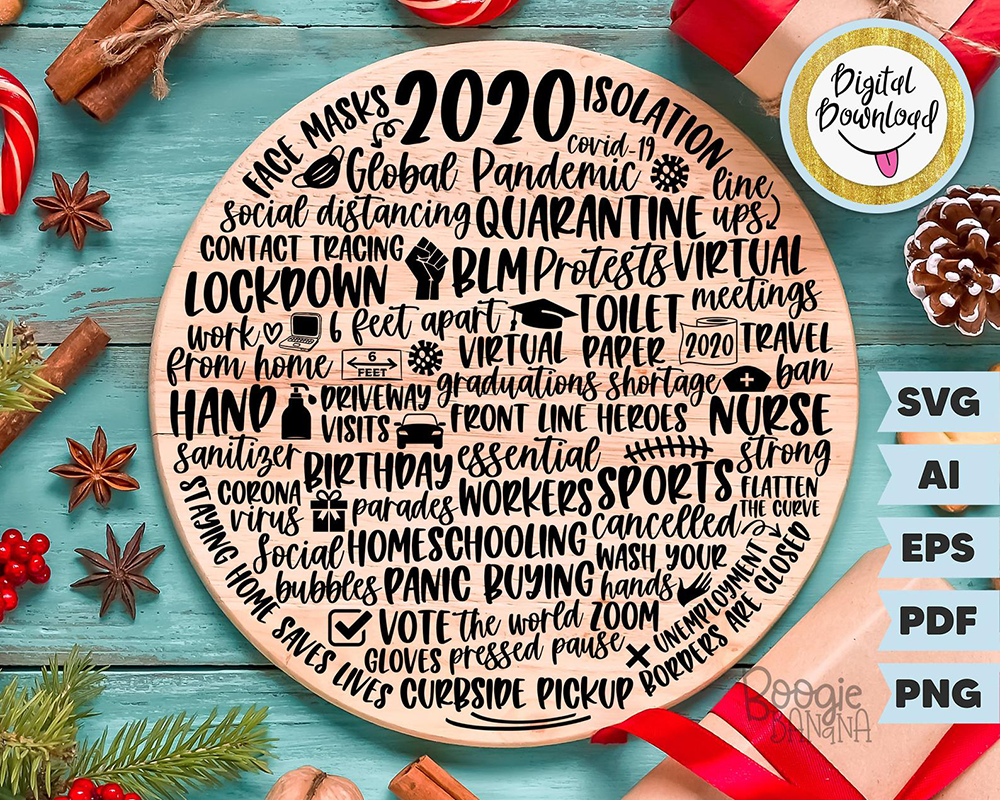 2020
FACE MASKS
ISOLATION
covid-19
Global Pandemic
line
ups
social distancing QUARANTINE
CONTACT TRACING
LOCKDOWN
BLM Protests VIRTUAL
meetings
work
from home
6 feet apart
6
FEET
VIRTUAL
graduations
TOILET
PAPER
shortage
2020
TRAVEL
ban
HAND
sanitizer
DRIVEWAY
VISITS
FRONT LINE HEROES
NURSE
strong
CORONA
virus
BIRTHDAY
parades
essential
WORKERS
SPORTS
cancelled
FLATTEN
THE CURVE
Social
bubbles
HOMESCHOOLING
PANIC BUYING
WASH YOUR
hands
VOTE
the world
pressed pause
ZOOM
GLOVES
UNEMPLOYMENT
BORDERS ARE CLOSED
STAYING HOME SAVES LIVES
CURBSIDE PICKUP
Digital
Download
SVG
AI
EPS
PDF
PNG
Boogie
BANANA